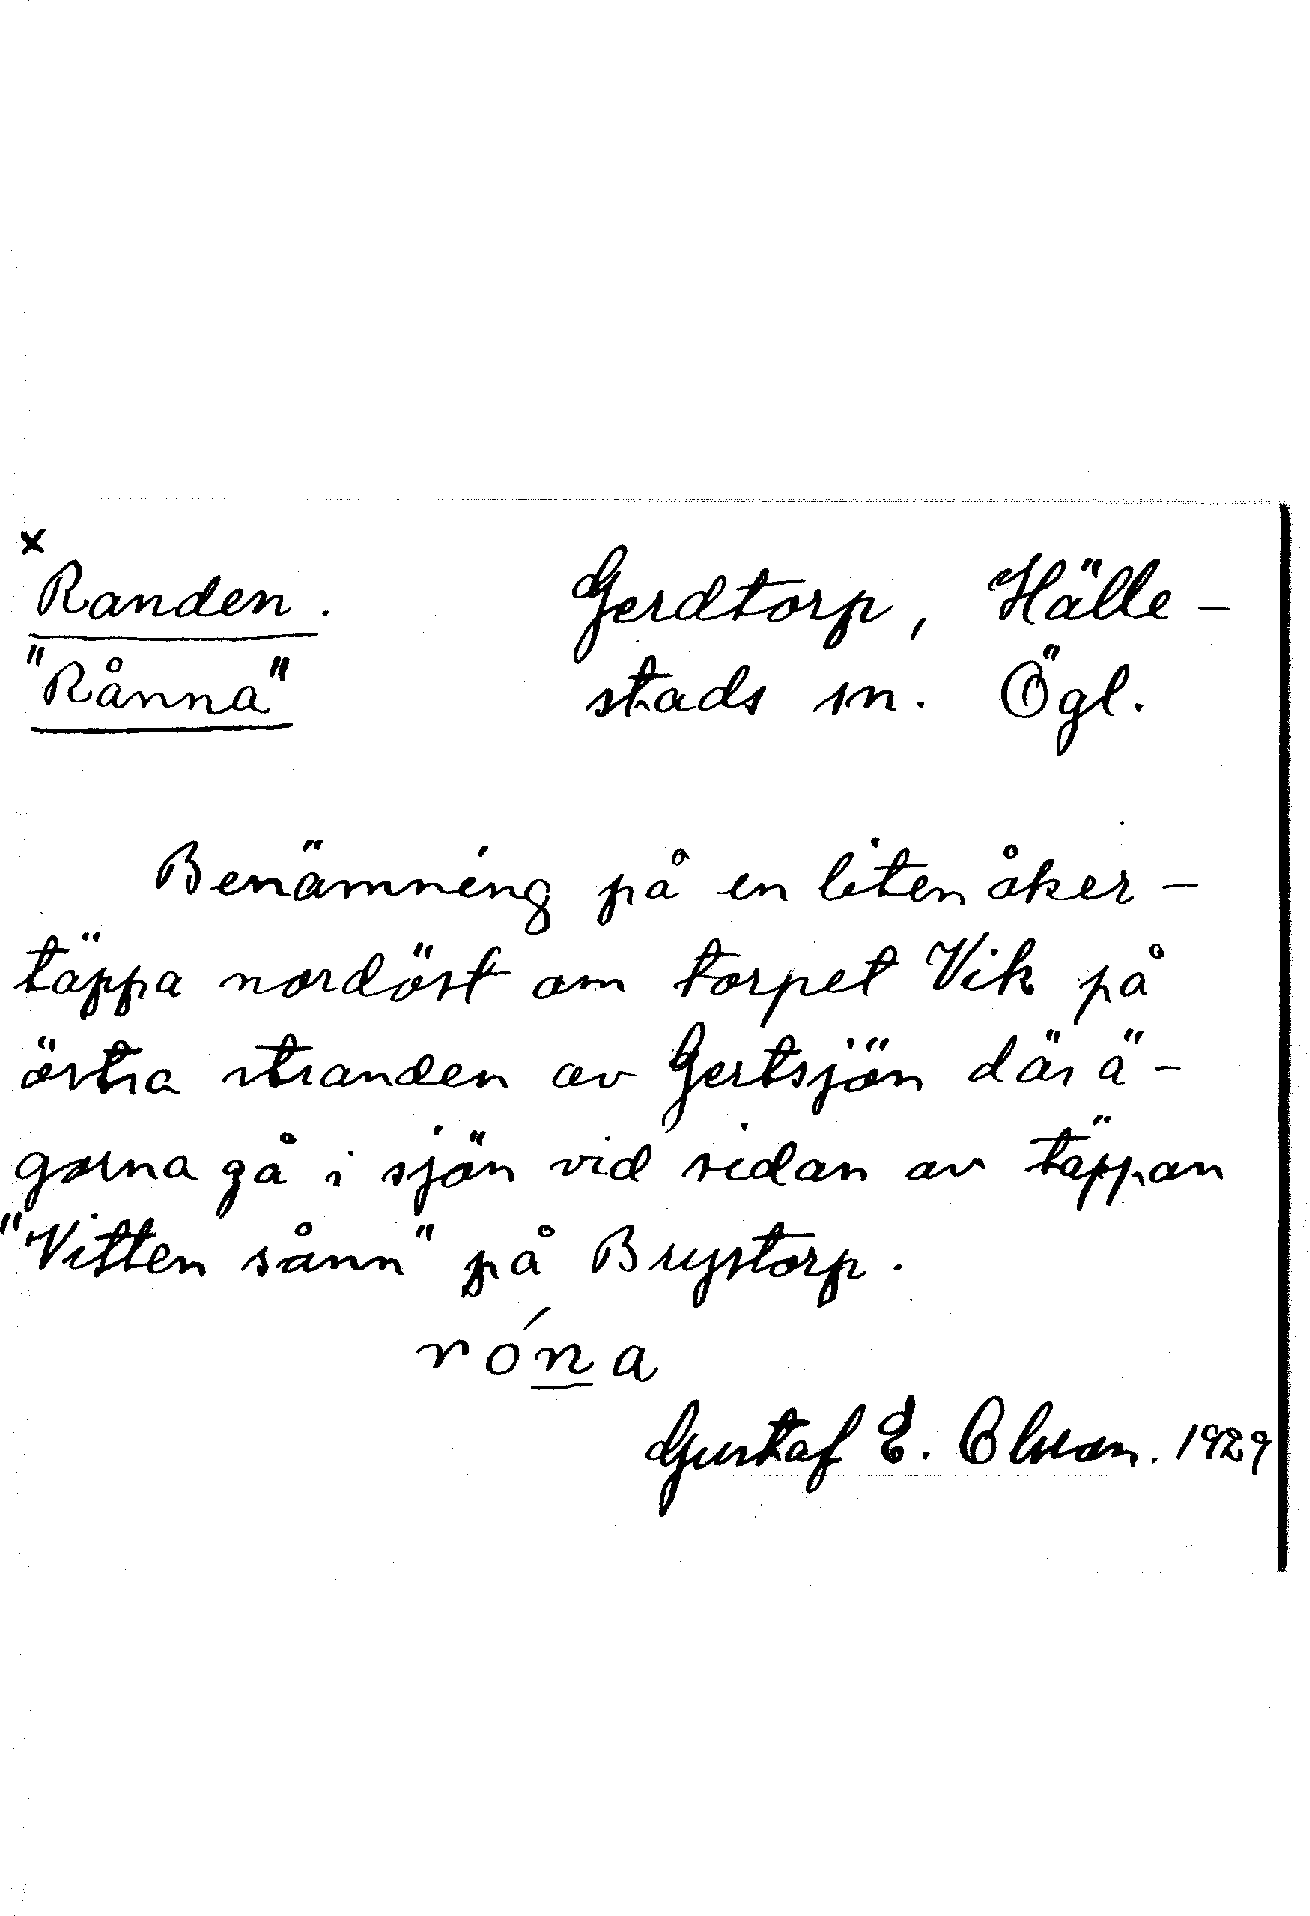 x
Randen. Gerdtorp, Hälle-
"Rånna" stads sn. Ögl.
Benämning på en liten åker-
täppa nordöst om torpet Vik på
östra stranden av Gertsjön där ä-
gorna gå i sjön vid sidan av täppan
"Vitten sånn" på Brystorp.
róna
Gustaf E. Olsson. 1929